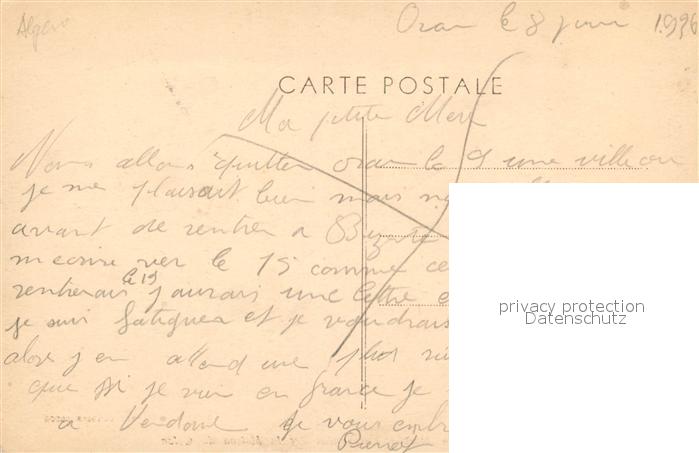 Algero
Oran le 8 juin 1936
CARTE POSTALE
Ma petite Mere
Nous allons quitter oran le 9 une ville ou
je me plaisait bien mais
avant de rentrer a
mecrire ver le 15 comme ce
le 19
rentrerais j aurais une lettre
je suis fatiguer et je voudrais
alors j en attend une plus
que si je vien en france je
a Vendome je vous embr
Pierrot
privacy protection
Datenschutz